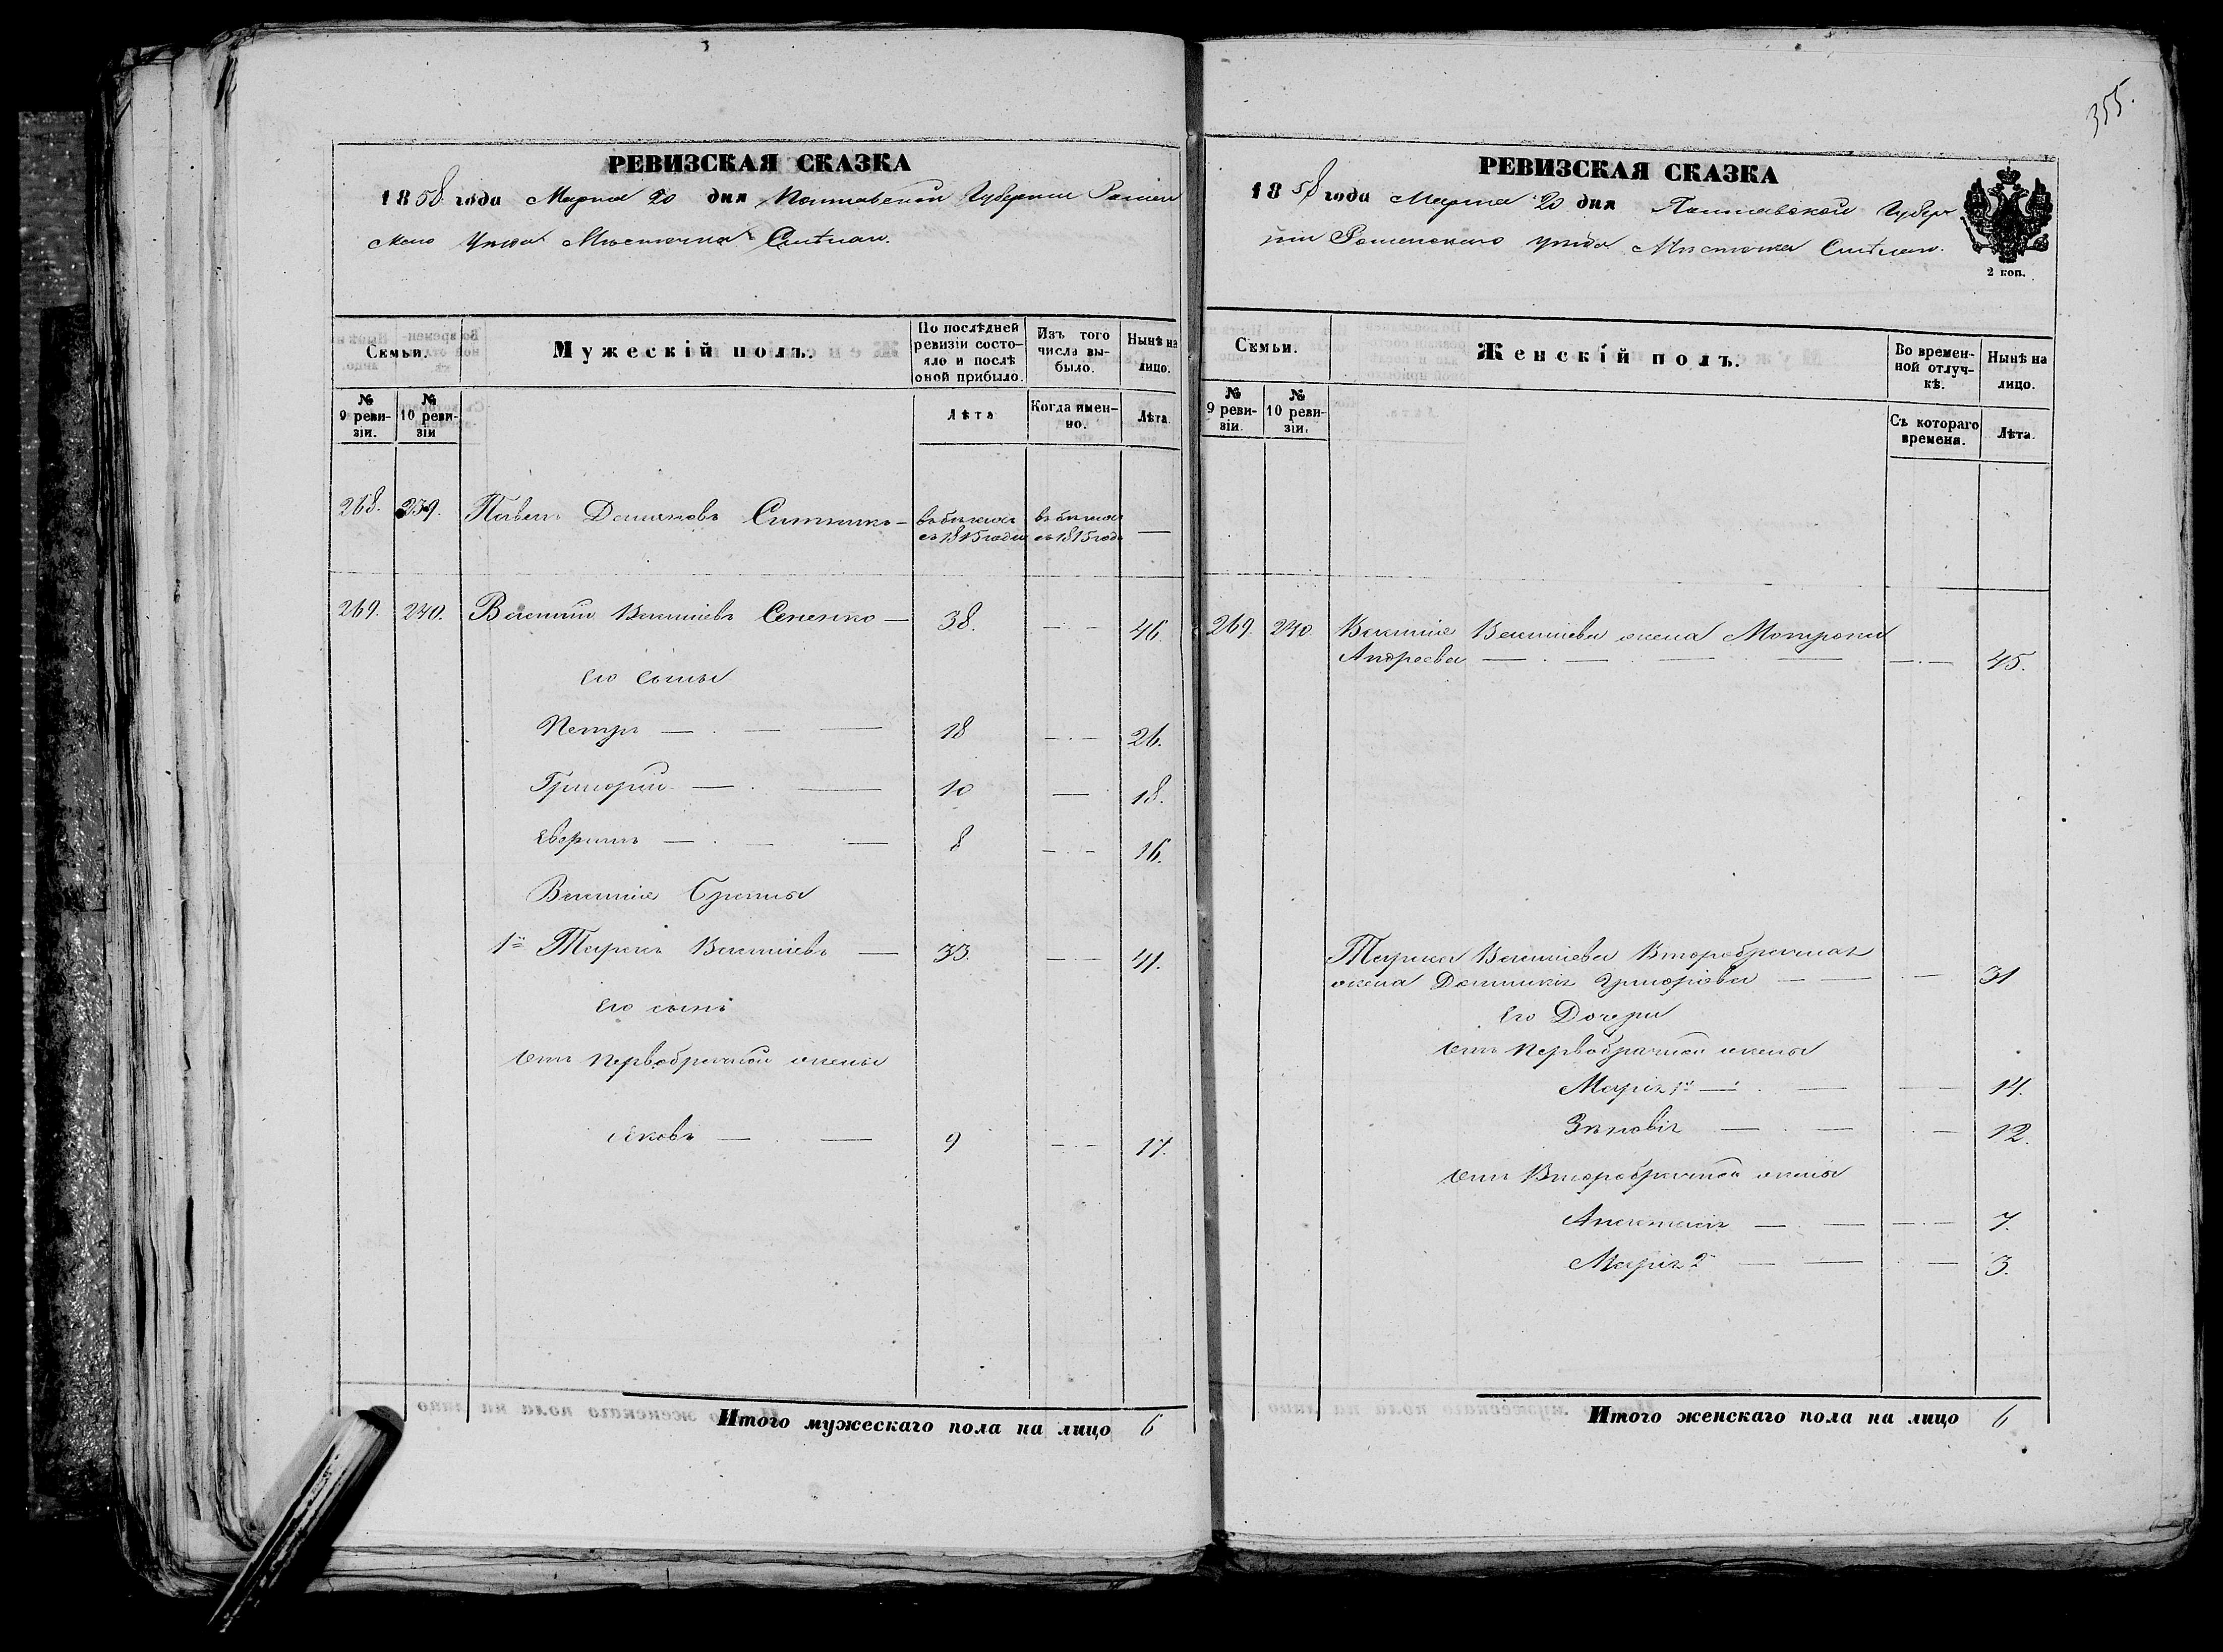 355.
РЕВИЗСКАЯ СКАЗКА
1858 года Марта 20 дня Полтавской Губернии Ромен
скаго Уѣзда Мѣстечка Смѣлаго.
Семьи.
Мужескій полъ.
По послѣдней ревизіи состояло и послѣ оной прибыло.
Изъ того числа выбыло.
Нынѣ на лицо.
№ 9 ревизіи.
№ 10 ревизіи
Лѣта
Когда именно.
Лѣта.
268. 239. Павелъ Демьяновъ — въ бѣгахъ съ 1815 года въ бѣгахъ съ 1815 года —
269. 240. Василий Васильевъ Сененко — 38. — 46.
Его сыны
Петръ — 18 — 26.
Григорий — 10 — 18.
8 — 16.
Василия Братья
1й Тарасъ Васильевъ — 33. — 41.
Его сынъ
отъ первобрачной жены
Яковъ — 9 — 17.
Итого мужескаго пола на лицо 6
РЕВИЗСКАЯ СКАЗКА
1858 года Марта 20 дня Полтавской Губер
ніи Роменскаго уѣзда Мѣстечка Смѣлаго.
2 коп.
Семьи.
Женскій полъ.
Во временной отлучкѣ.
Нынѣ на лицо.
№ 9 ревизіи.
№ 10 ревизіи.
Съ котораго времени.
Лѣта.
269. 240. Василия Васильева жена Мотрона
Андреева — — 45.
Тараса Васильева Второбрачная
жена Домникія Григорьева — — 31
Его Дочери
отъ первобрачной жены
Марія 1я — — 14.
Зѣновія — — 12.
отъ Второбрачной жены
Анастасія — — 7.
Марія 2я — — 3.
Итого женскаго пола на лицо 6